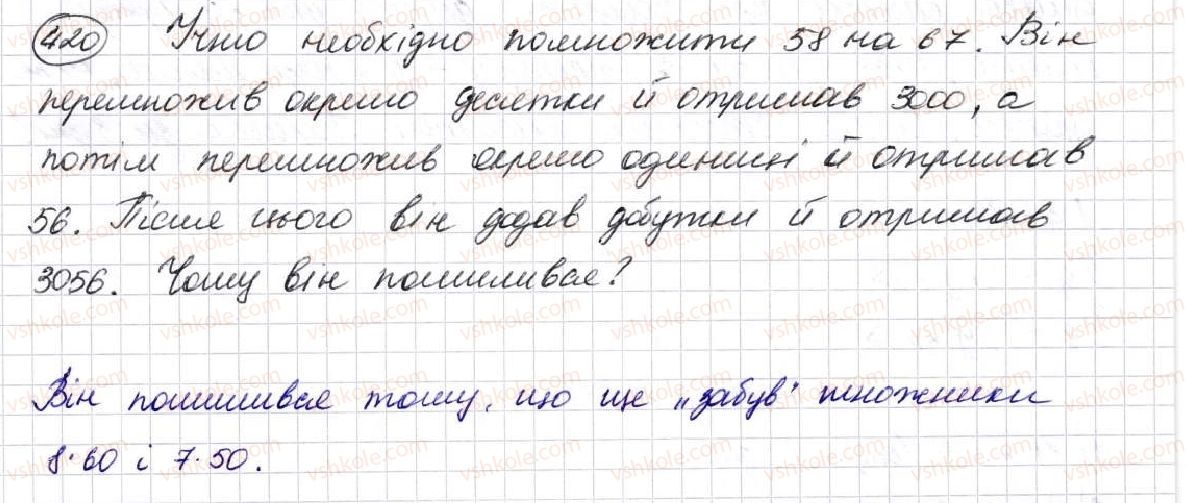 420 Учню необхідно помножити 58 на 67. Він
перемножив окремо десятки й отримав 3000, а
потім перемножив окремо одиниці й отримав
56. Після цього він додав добутки й отримав
3056. Чому він помилився?
Він помилився тому, що ще „забув" множники
8·60 і 7·50.